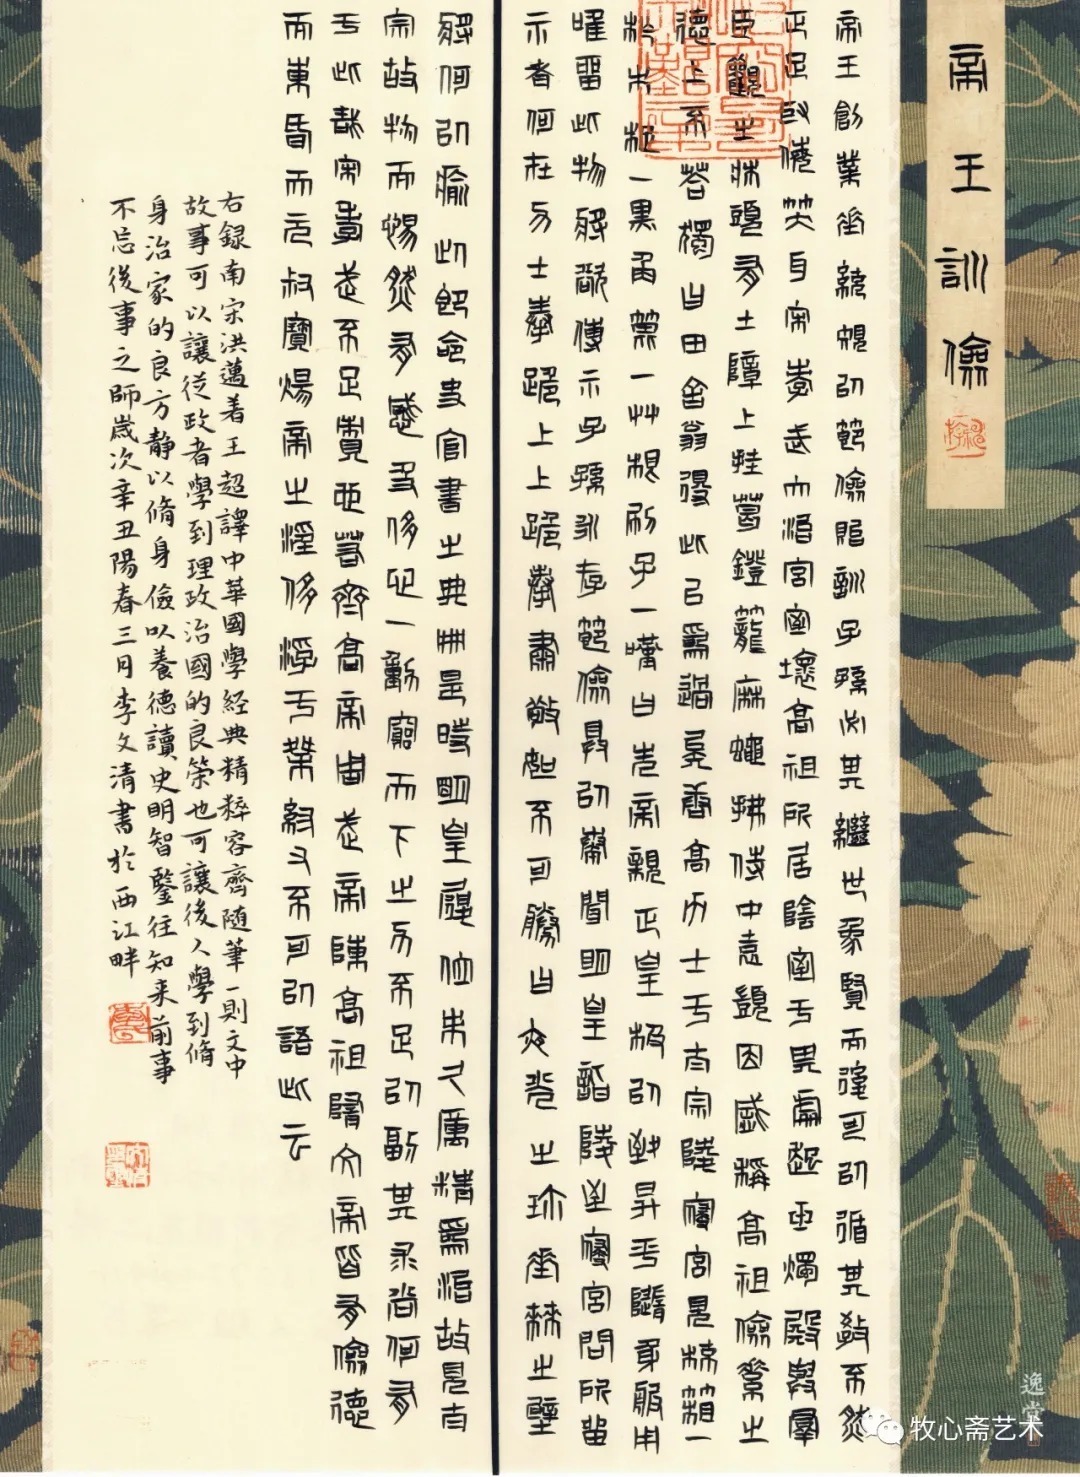 帝王訓儉
帝王創業垂統規以節儉貽訓子孫必其繼世象賢而後可以循其敎不然
正足取侮笑耳宋孝武大治宮室壞高祖所居陰室于其處起玉燭殿與羣
臣觀之牀頭有土障上挂葛鐙籠麻蠅拂侍中袁顗因盛稱高祖儉素之
德上不荅獨曰田舍翁得此已爲過矣唐高力士于太宗陵寢宮見梳箱一
柞木梳一黑角篦一艸根刷子一嘆曰先帝親正皇極以致昇平隨身服用
唯留此物將欲傳示子孫永存節儉具以奏聞明皇詣陵至寢宮問所留
示者何在力士奉跪上上跪奉肅敬如不可勝曰夜光之珍垂棘之璧
將何以愈此即命史官書之典冊是時明皇履位未久厲精爲治故見太
宗故物而惕然有感及侈心一動窮天下之力不足以副其求尚何有
于此哉宋孝武不足責也若齊高帝周武帝陳高祖隋文帝皆有儉德
而東昏天元叔寶煬帝之淫侈浮于桀紂又不可以語此云
右録南宋洪邁著王超譯中華國學經典精粹容齊随筆一則文中
故事可以讓從政者學到理政治國的良策也可讓後人學到脩
身治家的良方靜以脩身儉以養德讀史明智鑒往知來前事
不忘後事之師歲次辛丑陽春三月李文清書於西江畔
牧心斋艺术